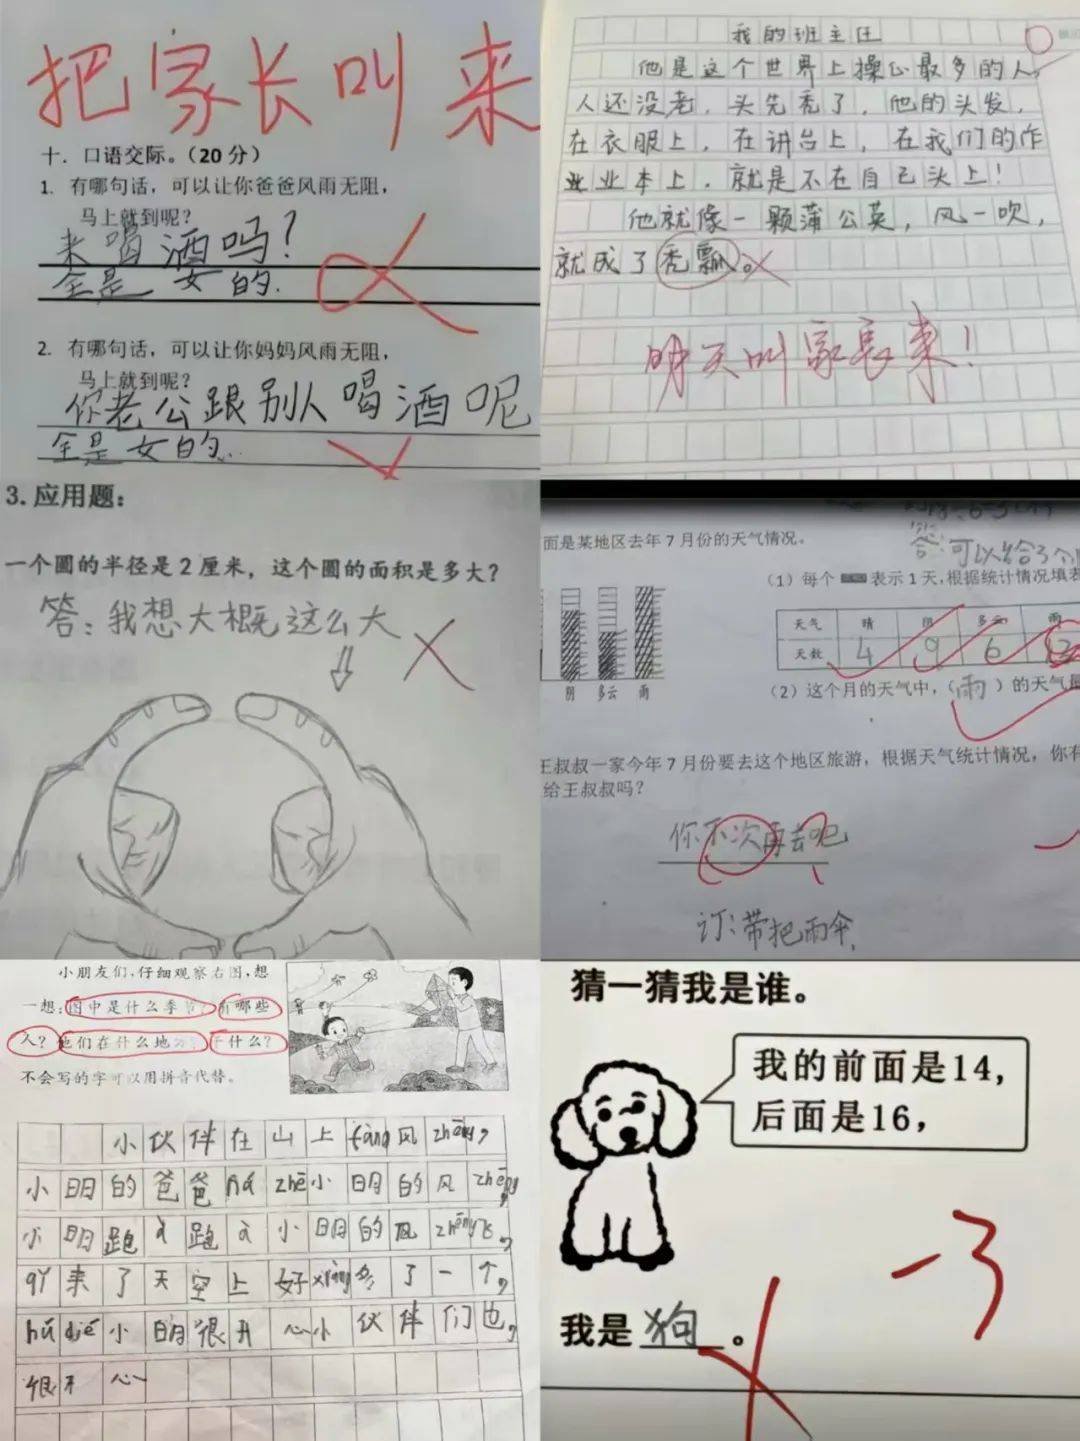 把家长叫来
十．口语交际。（20分）
1. 有哪句话，可以让你爸爸风雨无阻，
马上就到呢？
来喝酒吗？
全是女的.
2. 有哪句话，可以让你妈妈风雨无阻，
马上就到呢？
你老公跟别人喝酒呢
全是女的.
我的班主任
他是这个世界上操心最多的人，
人还没老，头先秃了，他的头发，
在衣服上，在讲台上，在我们的作
业本上，就是不在自己头上！
他就像一颗蒲公英，风一吹，
就成了秃瓢。
明天叫家长来！
3. 应用题：
一个圆的半径是2厘米，这个圆的面积是多大？
答：我想大概这么大
面是某地区去年7月份的天气情况。
答：可以给3个
（1）每个 表示1天，根据统计情况填表
天气 晴 阴 多云 雨
天数 4 9 6 12
阴 多云 雨
（2）这个月的天气中，（雨）的天气最
王叔叔一家今年7月份要去这个地区旅游，根据天气统计情况，你有
给王叔叔吗？
你下次再去吧
订：带把雨伞
小朋友们，仔细观察右图，想
一想：图中是什么季节？有哪些
人？他们在什么地方？干什么？
不会写的字可以用拼音代替。
小伙伴在山上fàng风zhēng，
小明的爸爸ná zhē小明的风zhēng，
小明跑à跑à小明的风zhēng飞，
qǐ来了天空上好xiàng多了一个，
hú dié小明很开心小伙伴们也，
很开心
猜一猜我是谁。
我的前面是14，
后面是16，
-3
我是狗。